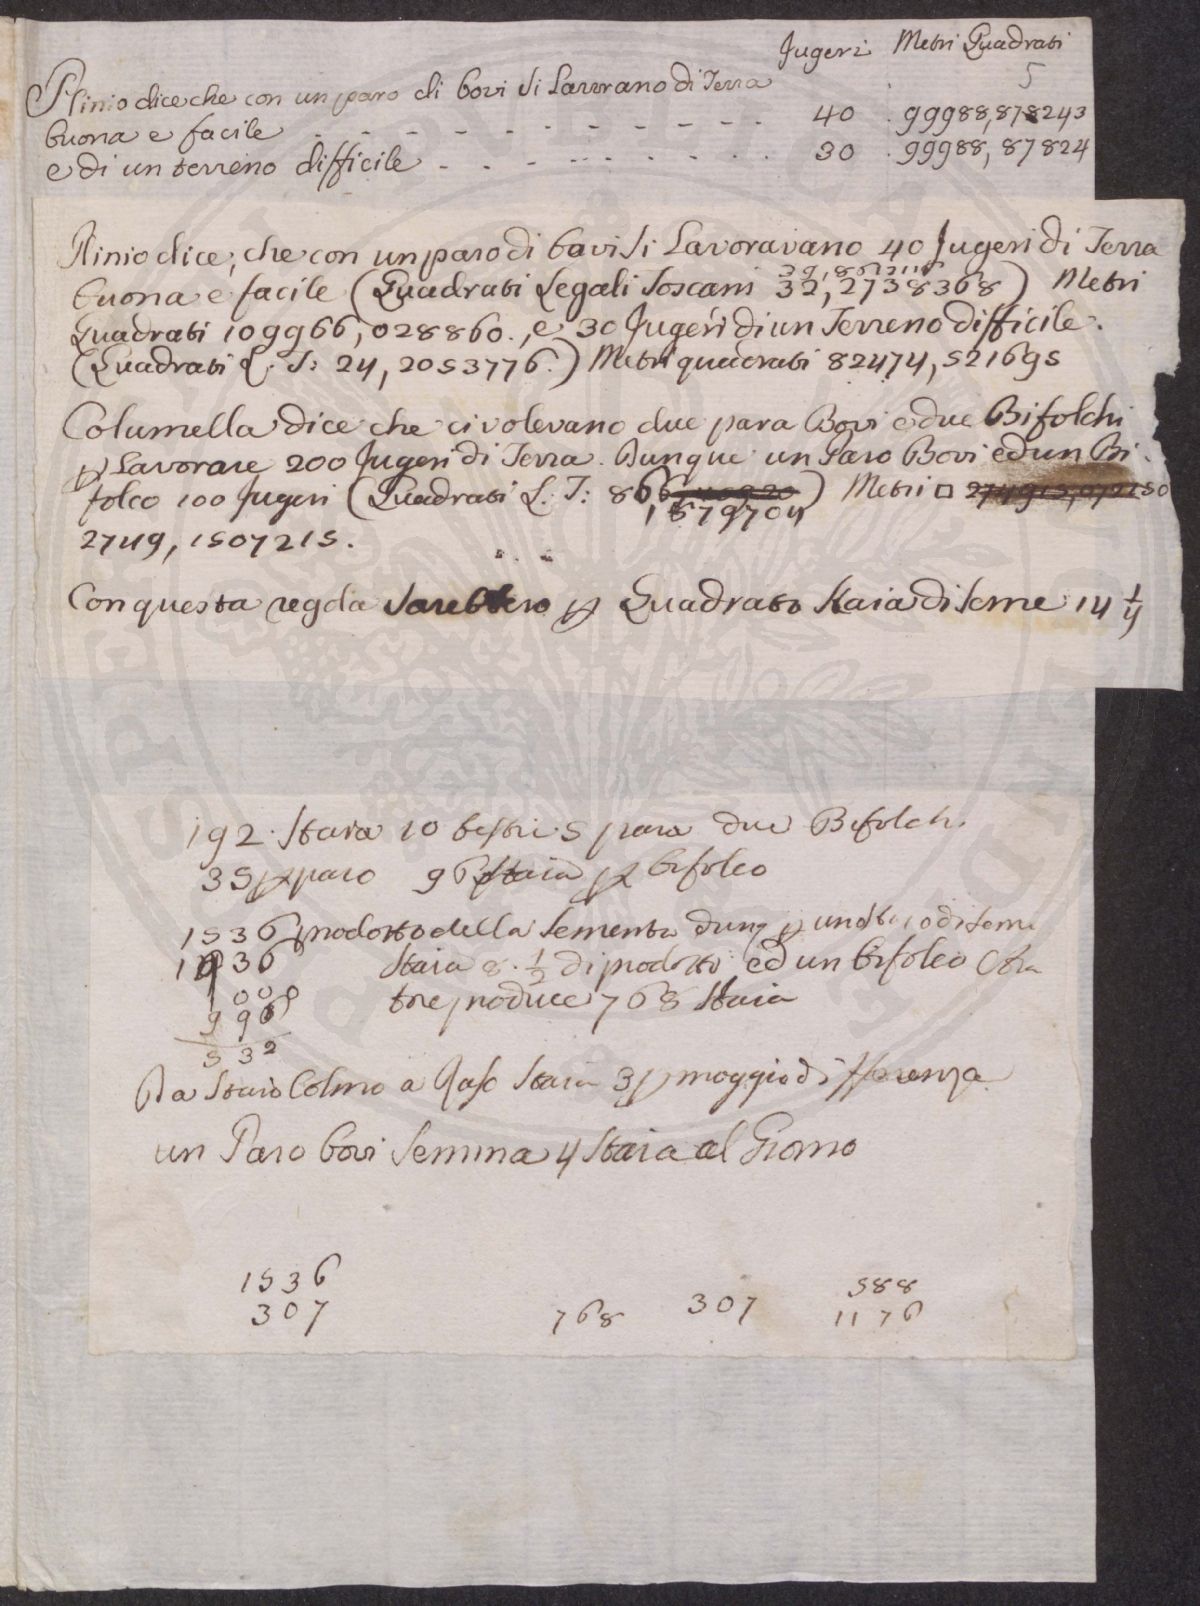 Jugeri Metri Quadrati
5
Plinio dice che con un paro di bovi si Lavorano di Terra
buona e facile - - - - - - - - - - - - 40 . 99988,878243
e di un terreno difficile - - - - - - - - - - 30 . 99988, 87824
Plinio dice, che con un paro di bovi si Lavoravano 40 Jugeri di Terra
buona e facile (Quadrati Legali Toscani 32,2738368) Metri
Quadrati 109966,028860., e 30 Jugeri di un Terreno difficile.
(Quadrati L. T: 24, 2053776.) Metri quadrati 82474, 521695
Columella dice che ci volevano due para Bovi e due Bifolchi
p Lavorare 200 Jugeri di Terra. Dunque un Paro Bovi ed un Bi-
folco 100 Jugeri (Quadrati L: T: 86 ) Metri □
1579704
2749, 1507215.
Con questa regola sarebbero p Quadrato Staia di seme 14 1/4
192. Staia 10 bestie 5 para due Bifolchi
35 p paro 96 staia p bifolco
1536 prodotto della sementa dunq p uno staio di seme
1936 Staia 8. 1/2 di prodotto ed un bifolco
1000 tore produce 768 Staia
996
532
Da Staio Colmo a Raso Staia 3 p moggio di differenza
un Paro bovi semina 4 Staia al Giorno
1536
307
768 307
588
1176